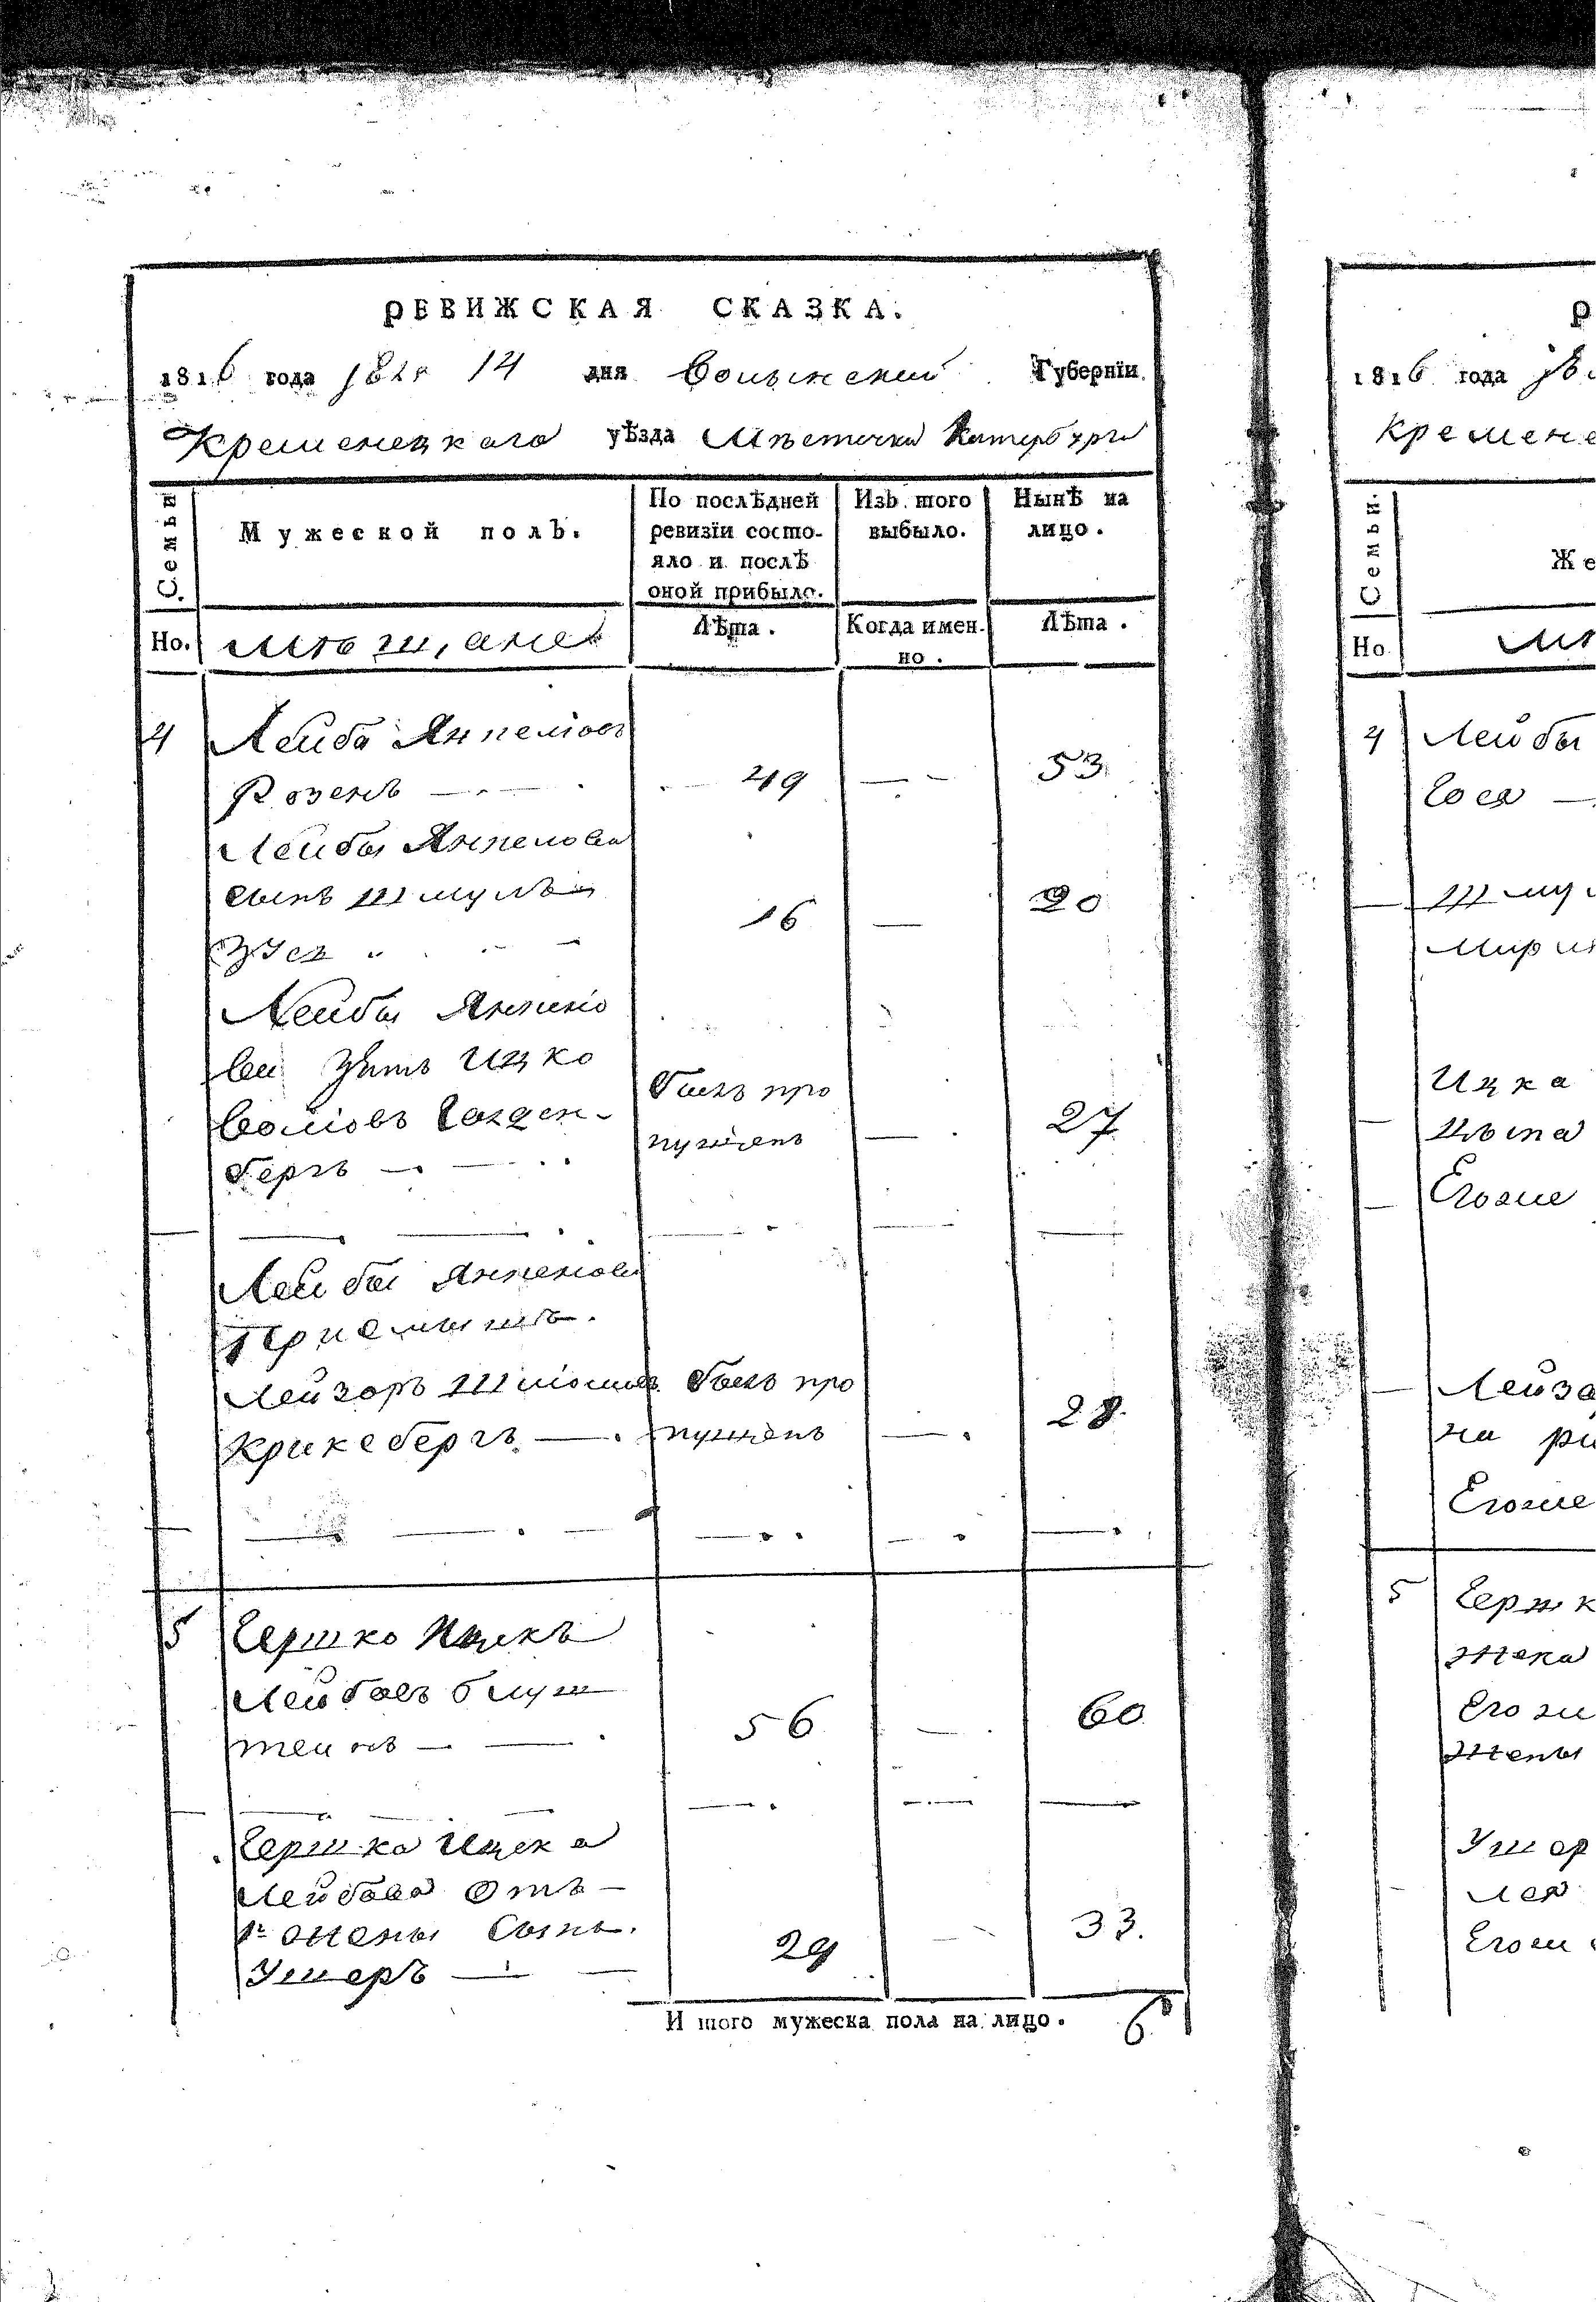 РЕВИЖСКАЯ СКАЗКА.
1816 года 14 дня Волынской Губернїи
Кременецкаго уѣзда Мѣстечка Катербурга
Семьи
Мужеской полъ.
По послѣдней ревизїи состояло и послѣ оной прибыло.
Изъ того выбыло.
Нынѣ на лицо.
Но.
мѣщане
Лѣта.
Когда именно.
Лѣта.
4 Лейба Янкелїовъ
Розенъ 49 53
Лейбы Янкелова
сынъ Шмуль
Зусь 16 20
Лейбы Янкелїо
ва Зять Ицко
Волїовъ Голден
бергъ былъ про
пущенъ 27
Лейбы Янкелова
Приемышъ.
Лейзоръ Шлїомовъ былъ про
Крикебергъ пущенъ 28.
5 Гершко Ицикъ
Лейбовъ блуш
теинъ 56 60
Гершка Ицека
Лейбова отъ
1й жены Сынъ.
Ушеръ 29 33.
И того мужеска пола на лицо. 6
Р
1816 года
Кремене
Семьи.
Же
Но
мѣ
4 Лейбы
Гося
Шму
Мирия
Ицка
Егоже
Лейзо
на
Егоже
5 Гершк
Жена
Егоже
Жены
Ушер
Лея